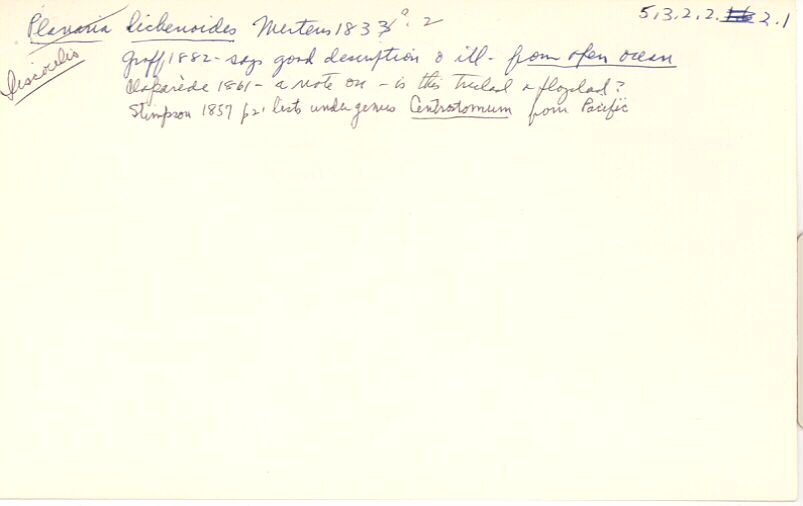 Planaria lichenoides Mertens 1833 ?. 2
5.13.2.2. 2.1
Discocelis
Graff 1882 - says good description & ill - from open ocean
Claparède 1861 - a note on - is this triclad or polyclad?
Stimpson 1857 p 2. lists under genus Centrostomum from Pacific